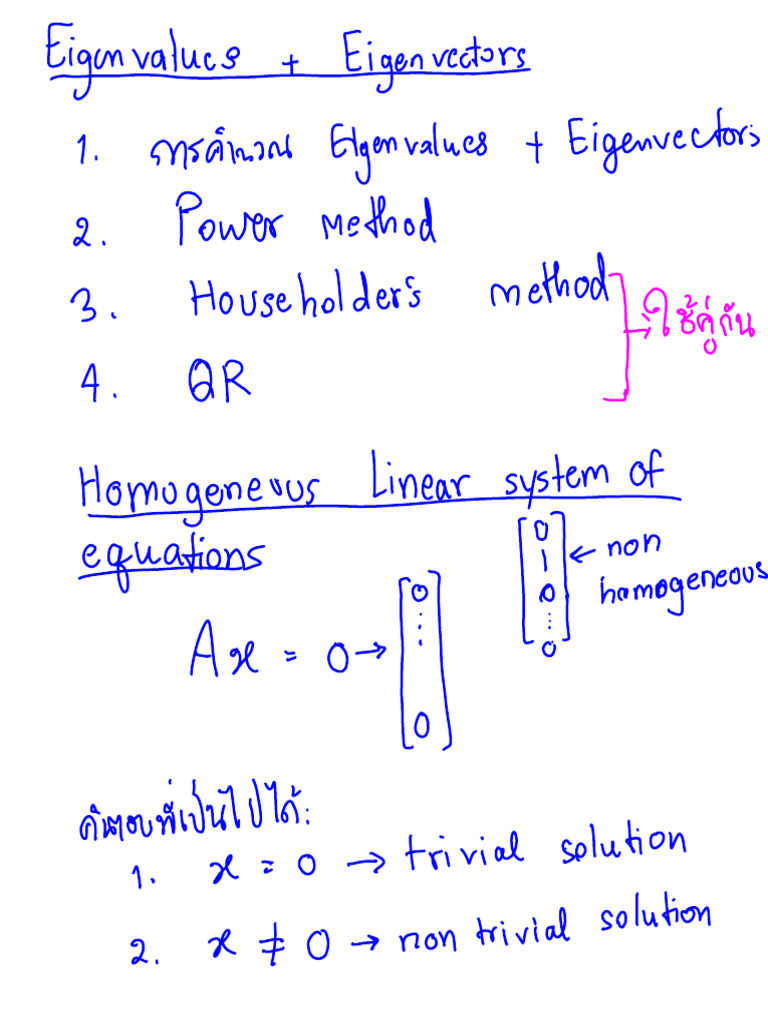 Eigenvalues + Eigenvectors
1. การคำนวณ Eigenvalues + Eigenvectors
2. Power method
3. Householder's method
4. QR
→ ใช้คู่กัน
Homogeneous Linear system of
equations
[0 1 0 ⋮ 0] ← non
homogeneous
Ax = 0 → [0 ⋮ 0]
คำตอบที่เป็นไปได้:
1. x = 0 → trivial solution
2. x ≠ 0 → non trivial solution